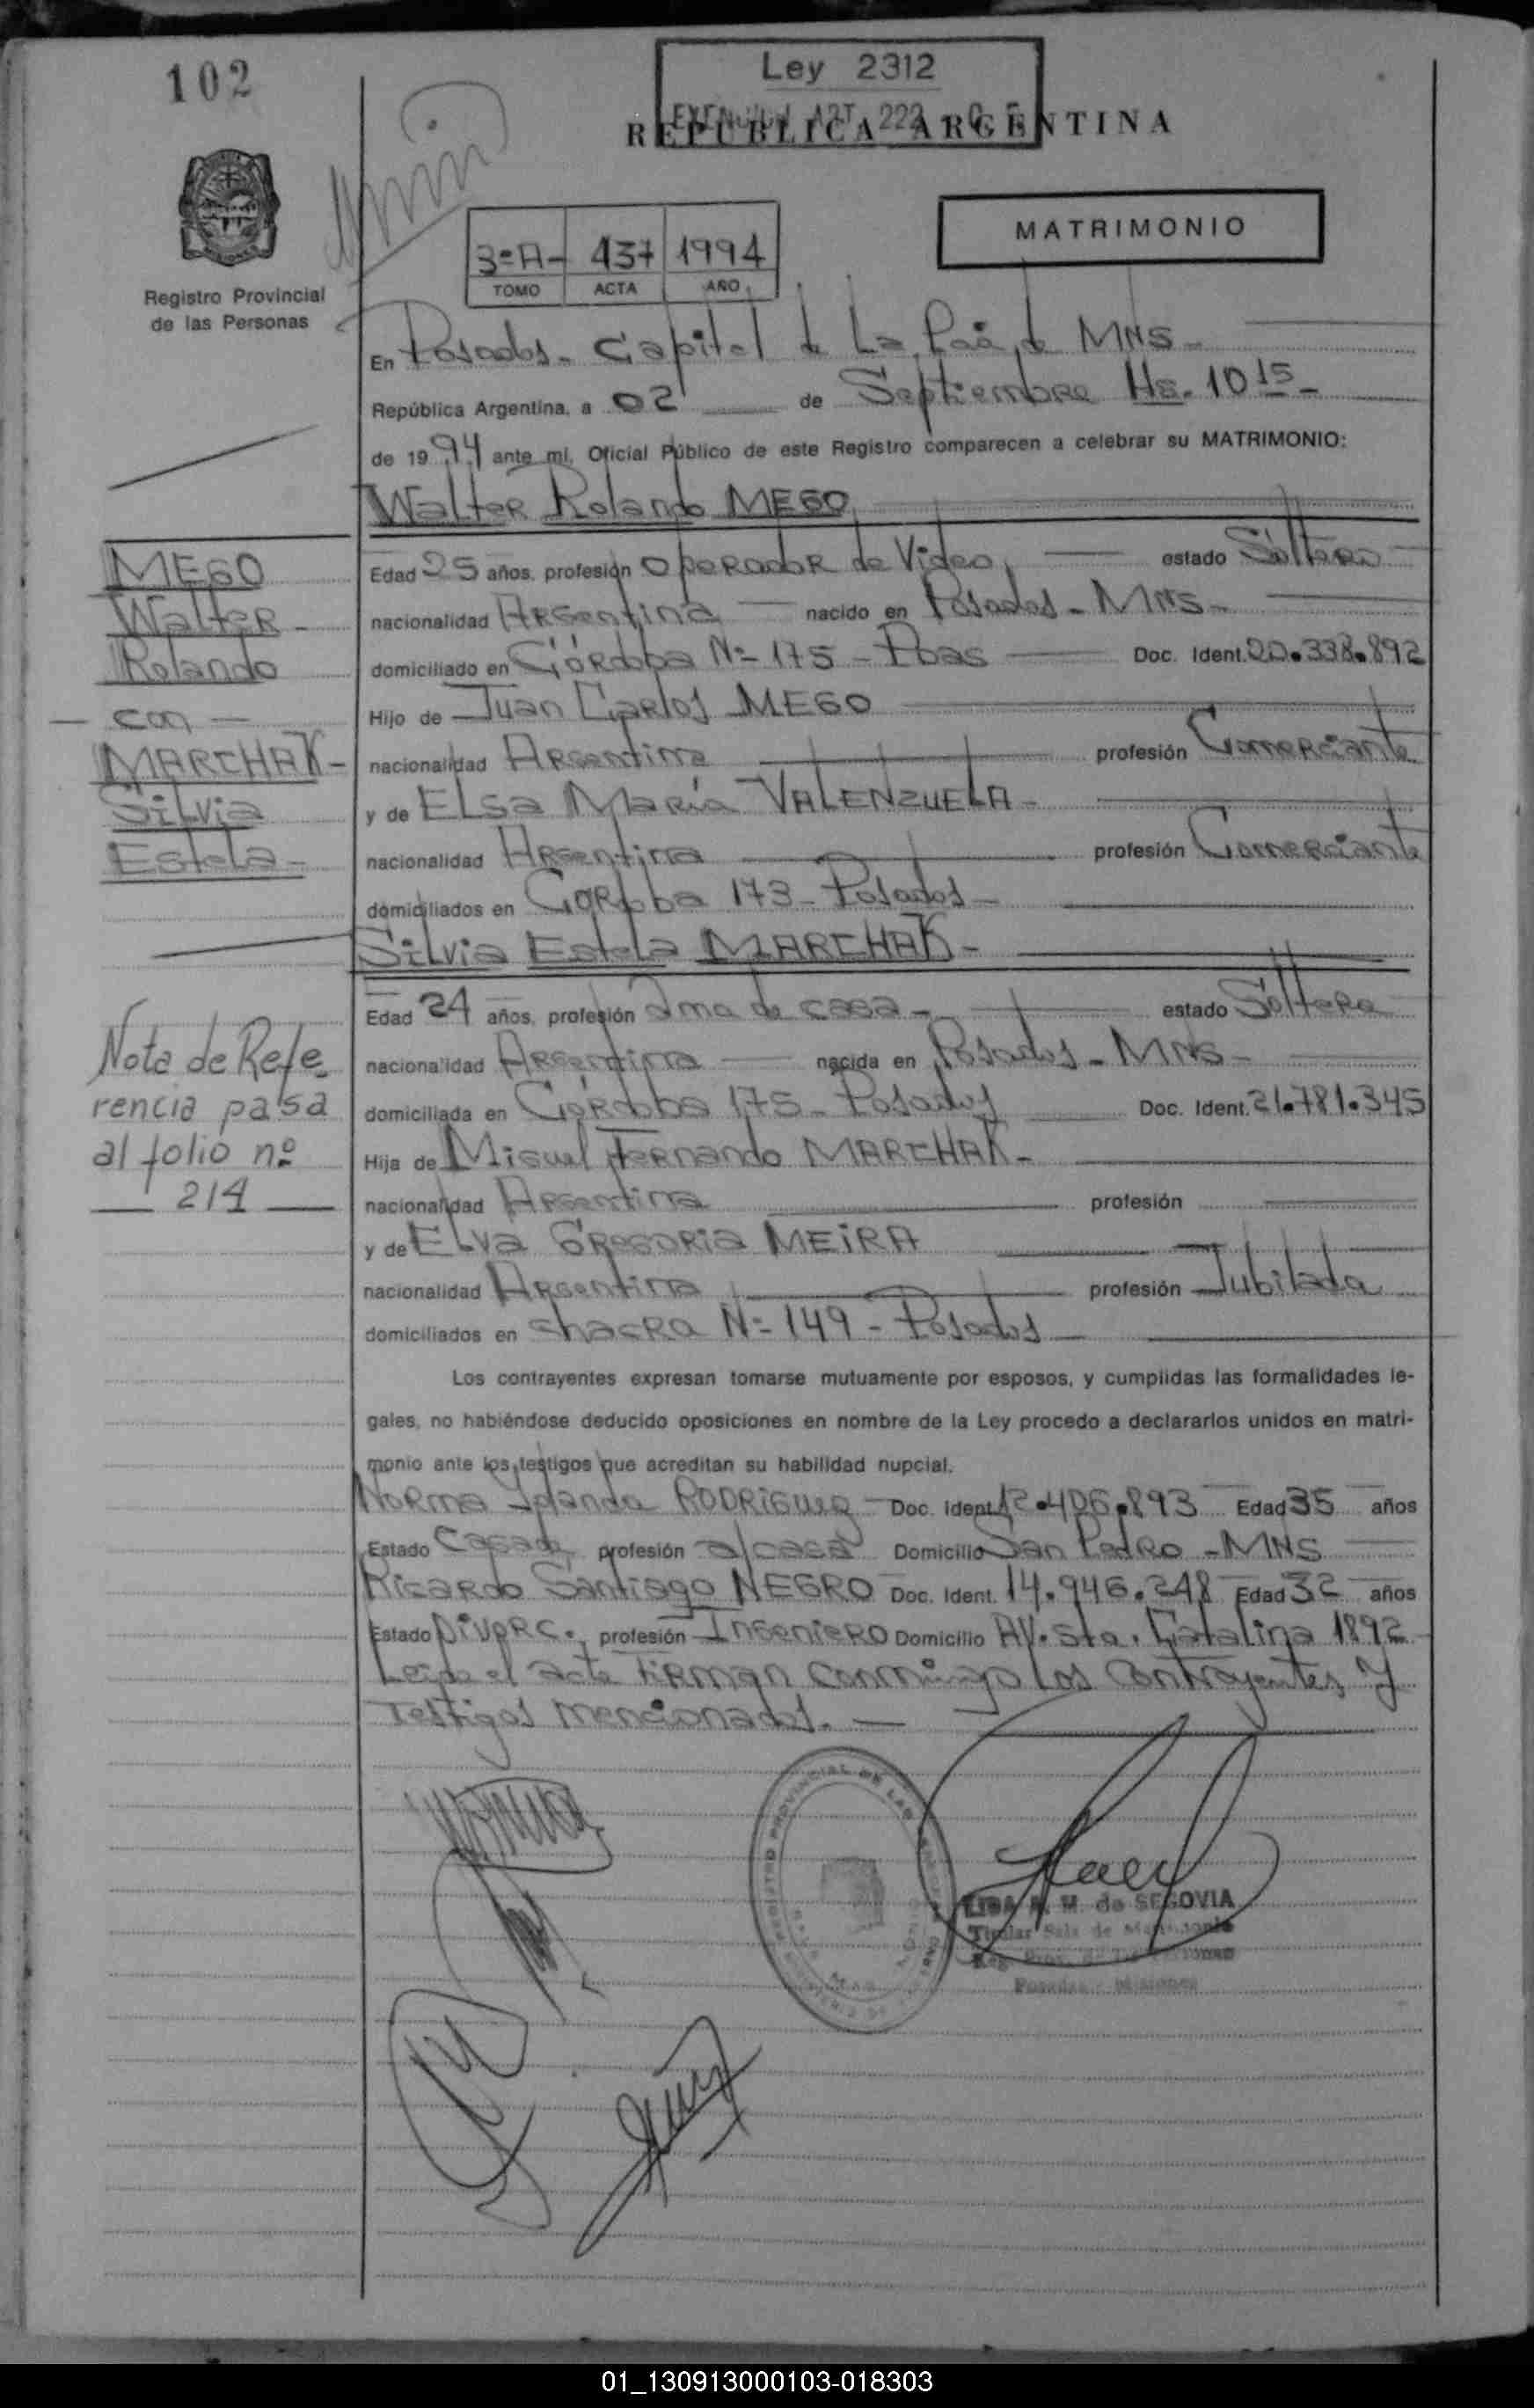 102
Ley 2312
EXENCION ART 222
REPUBLICA ARGENTINA
MATRIMONIO
3º A- 437 1994
TOMO ACTA AÑO
Registro Provincial
de las Personas
En Posadas - Capital de La Pcia de MNS -
República Argentina, a 02 de Septiembre Hs. 10 15 -
de 1994 ante mí, Oficial Público de este Registro comparecen a celebrar su MATRIMONIO:
Walter Rolando MEGO
MEGO
Walter -
Rolando
- con -
MARCHAK -
Silvia
Estela -
Edad 25 años, profesión Operador de Video, estado Soltero
nacionalidad Argentina nacido en Posadas - MNS -
domiciliado en Córdoba Nº 175 - Pdas Doc. Ident. 20.338.892
Hijo de Juan Carlos MEGO
nacionalidad Argentina profesión Comerciante
y de Elsa María VALENZUELA -
nacionalidad Argentina profesión Comerciante
domiciliados en Córdoba 173 - Posadas -
Silvia Estela MARCHAK -
Edad 24 años, profesión ama de casa - estado Soltera
nacionalidad Argentina nacida en Posadas - MNS -
domiciliada en Córdoba 175 - Posadas Doc. Ident. 21.781.345
Hija de Miguel Fernando MARCHAK -
nacionalidad Argentina profesión
y de Elva Gregoria MEIRA
nacionalidad Argentina profesión Jubilada
domiciliados en chacra Nº 149 - Posadas
Nota de Refe-
rencia pasa
al folio nº
214
Los contrayentes expresan tomarse mutuamente por esposos, y cumplidas las formalidades le-
gales, no habiéndose deducido oposiciones en nombre de la Ley procedo a declararlos unidos en matri-
monio ante los testigos que acreditan su habilidad nupcial.
Norma Yolanda RODRIGUEZ - Doc. Ident. 12.406.893 Edad 35 años
Estado Casada profesión a/casa Domicilio San Pedro - MNS
Ricardo Santiago NEGRO Doc. Ident. 14.946.248 Edad 32 años
Estado Divorc., profesión Ingeniero Domicilio AV. Sta. Catalina 1892
Leída el acta firman conmigo los contrayentes y
Testigos mencionados. -
REGISTRO PROVINCIAL DE LAS
M. de SEGOVIA
Titular Sala de Matrimonio
Posadas - Misiones
01_130913000103-018303